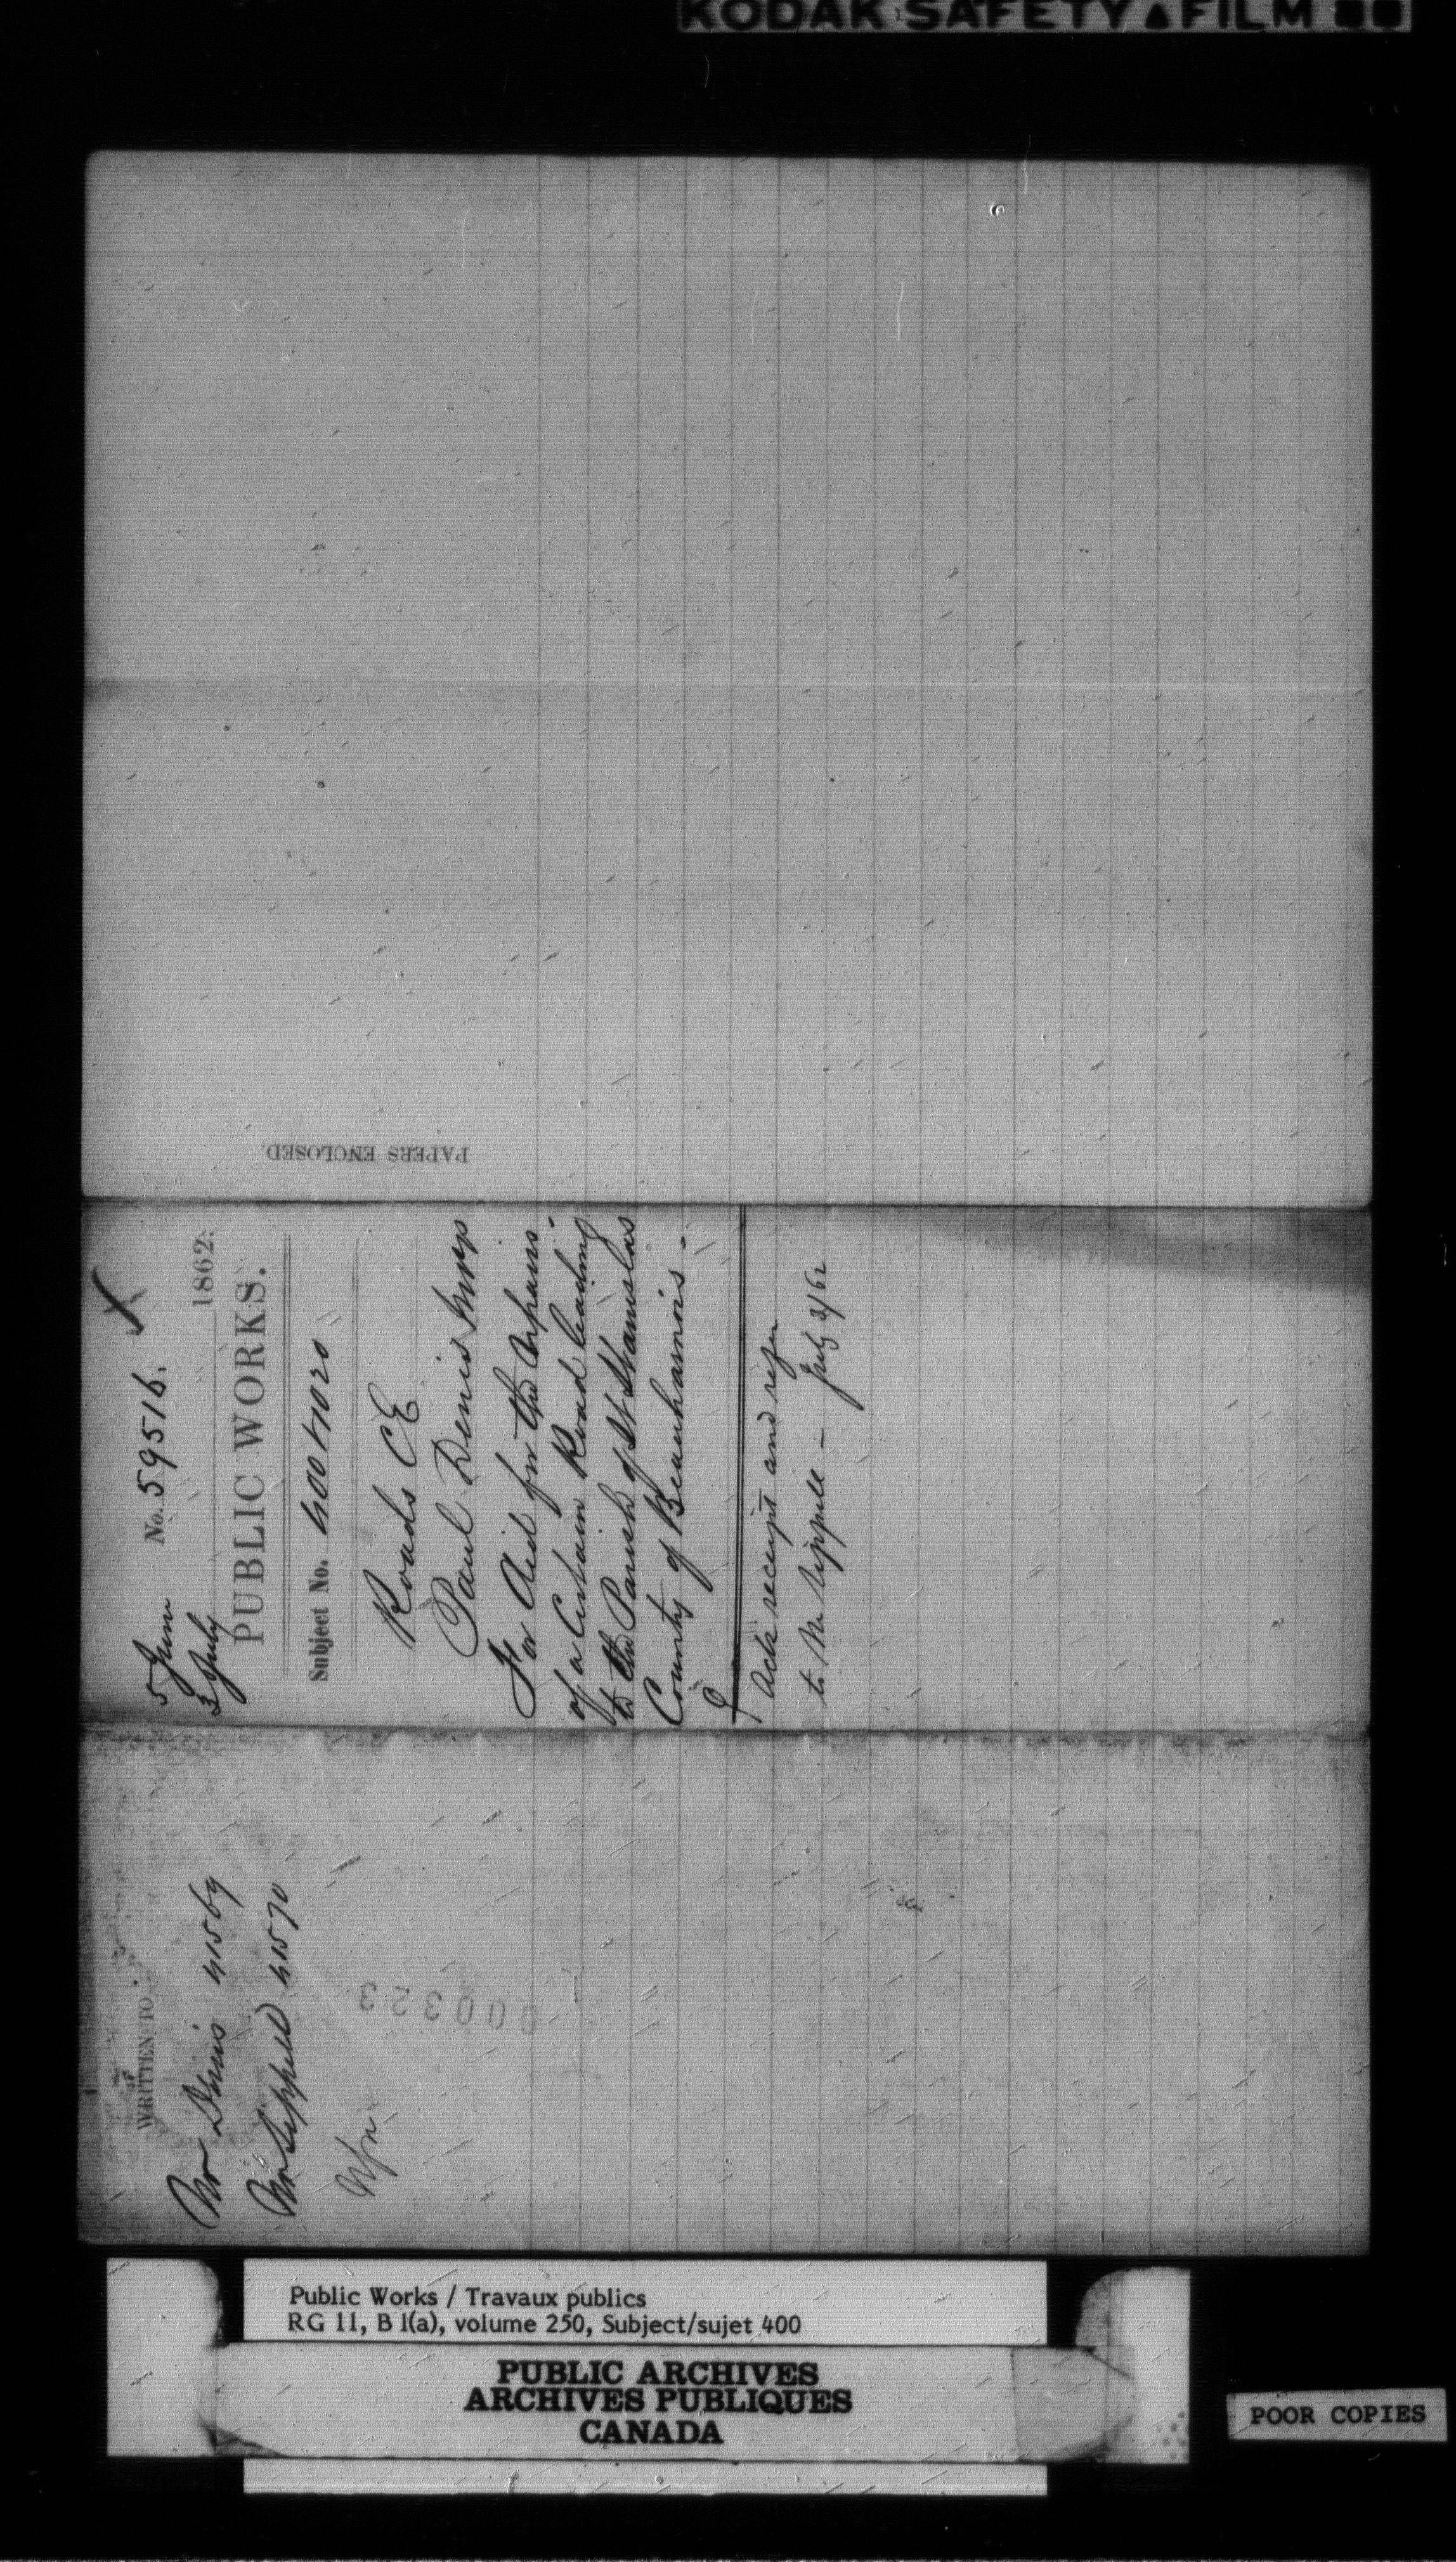 KODAK SAFETY ▲ FILM ■■
PAPERS ENCLOSED.
5 June No. 59516.
3 July 1862.
PUBLIC WORKS.
Subject No. 400 + 1020
Roads CE
Paul Denis Mpp
For Aid for the repairs
of a Certain Road leading
to the Parish of St Stanislas
County of Beauharnois.
Ack receipt and refer
to Mr Sippell — July 3/62
WRITTEN TO
Mr Denis 41569
Mr Sippell 41570
000323
Public Works / Travaux publics
RG 11, B 1(a), volume 250, Subject/sujet 400
PUBLIC ARCHIVES
ARCHIVES PUBLIQUES
CANADA
POOR COPIES